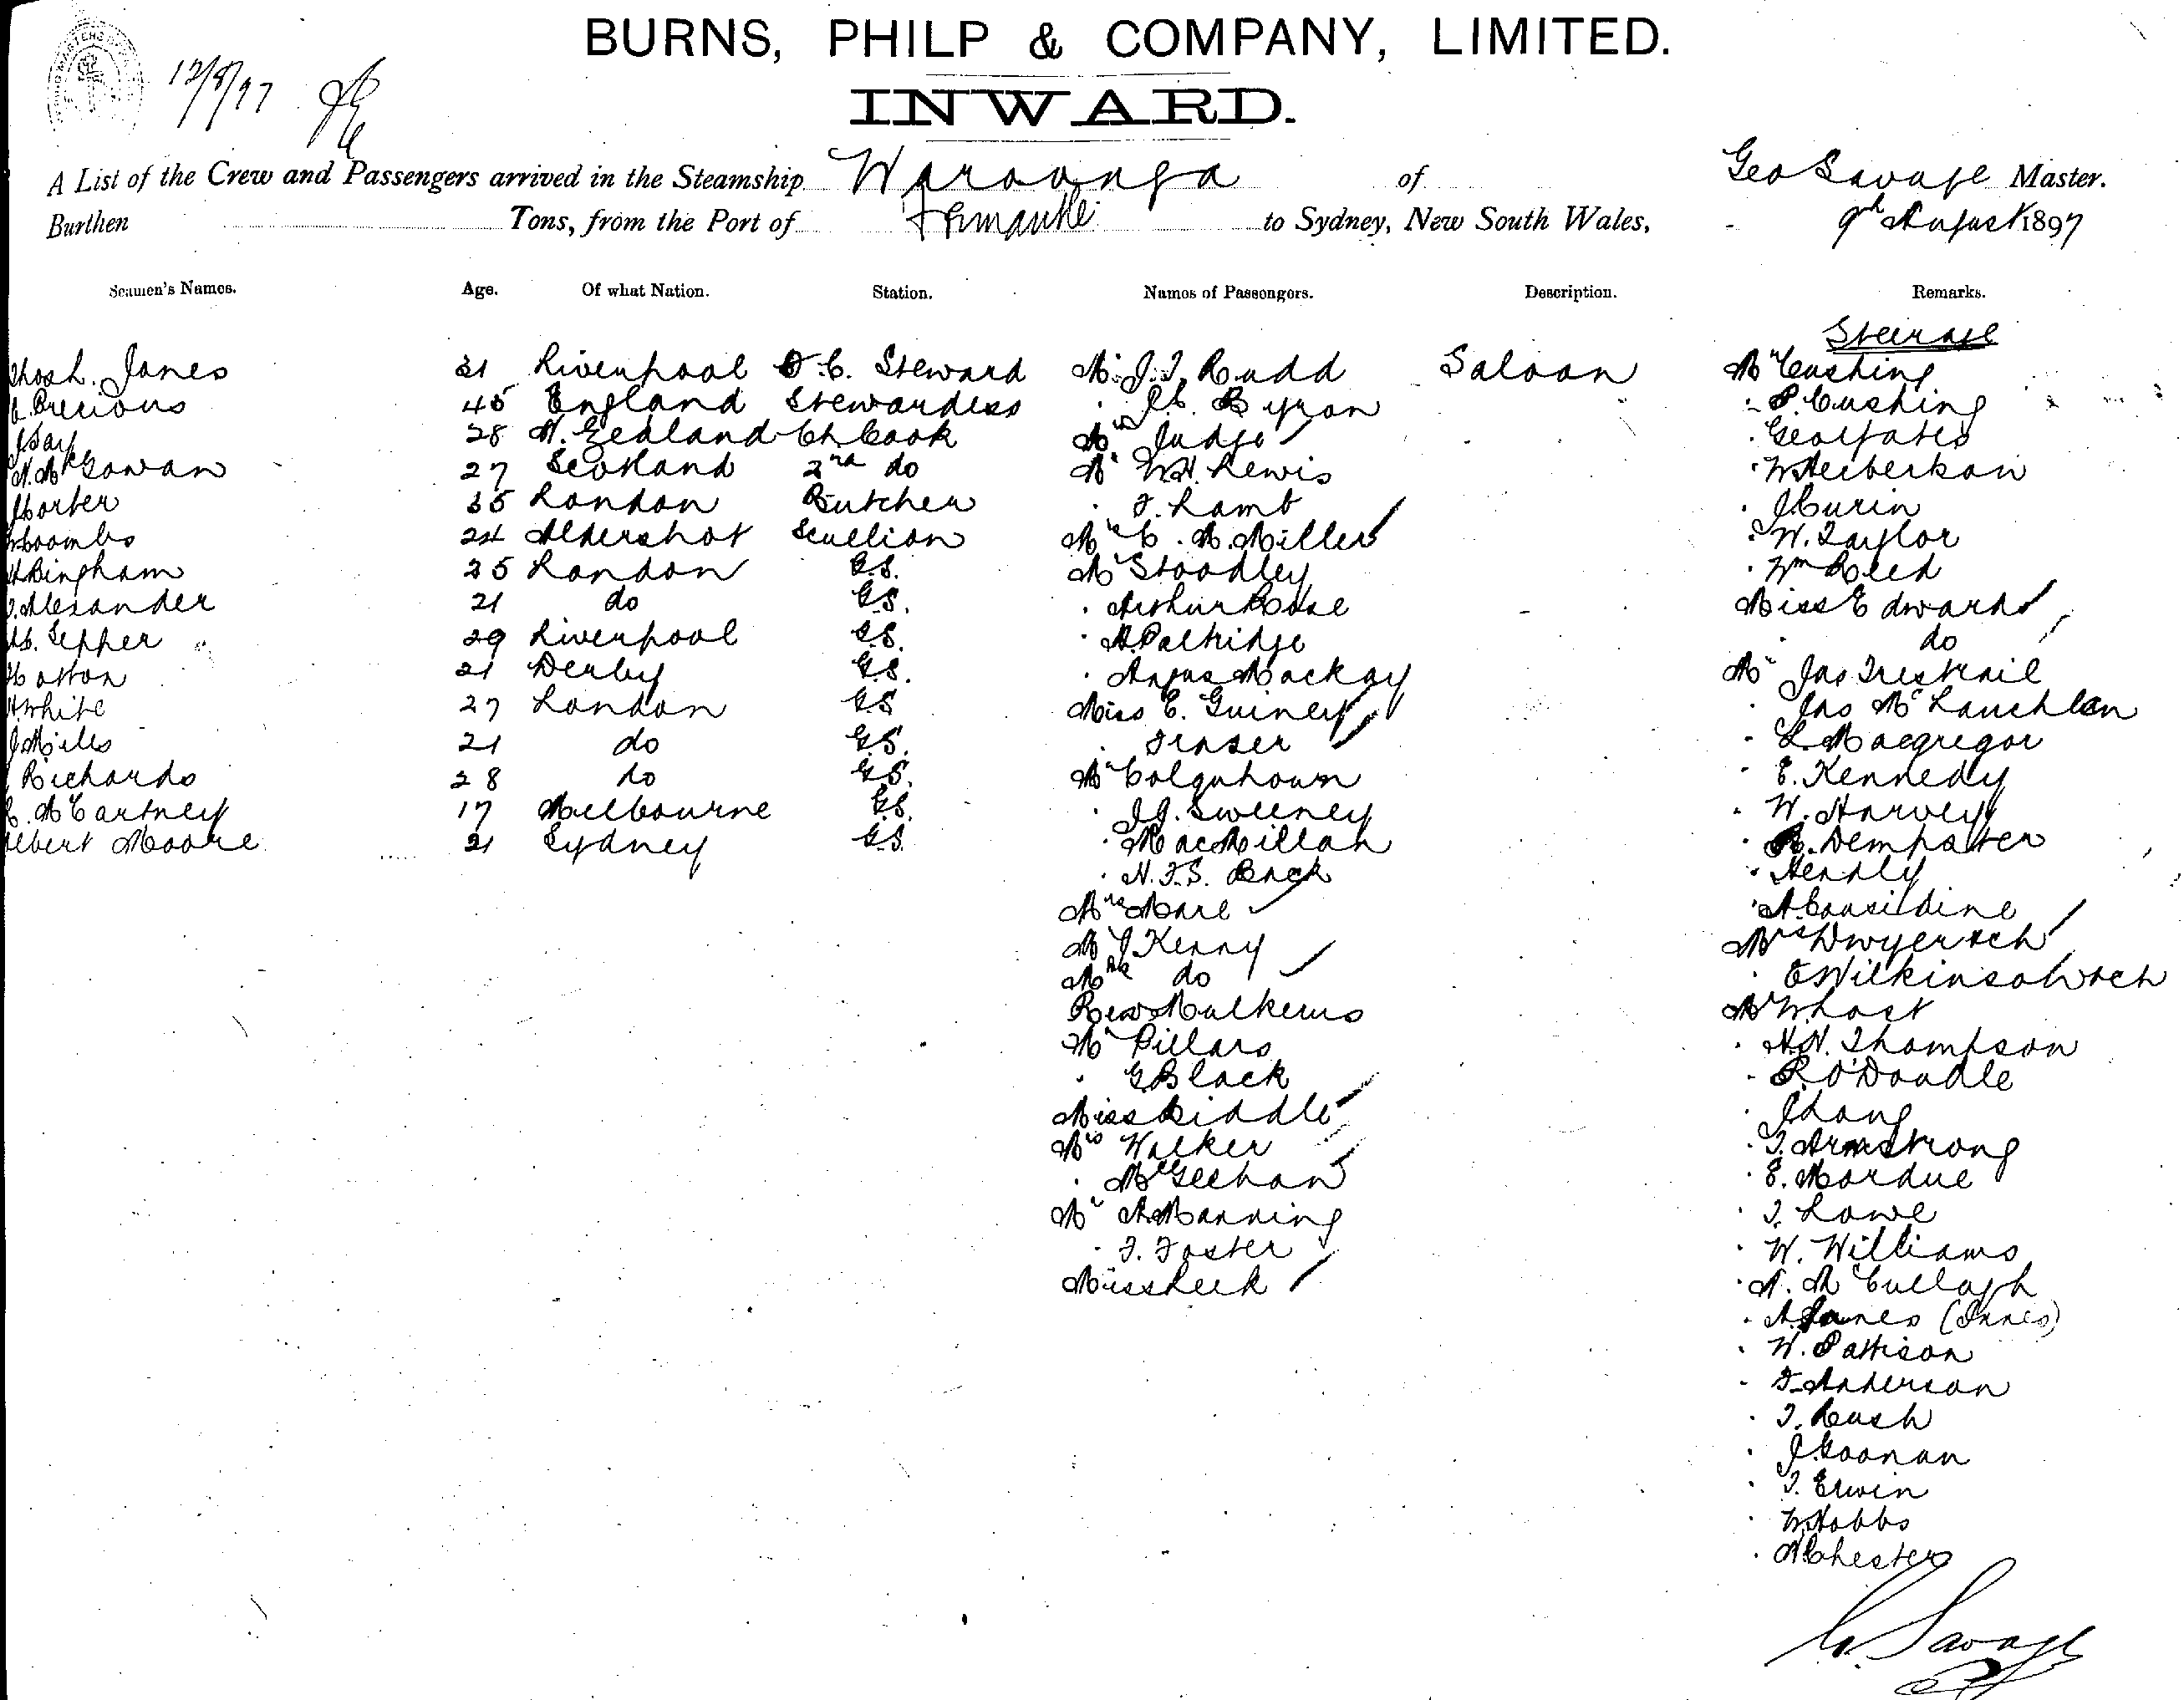 12/8/97
BURNS, PHILP & COMPANY, LIMITED.
INWARD.
A List of the Crew and Passengers arrived in the Steamship Waroonga of Geo Savage Master.
Burthen Tons, from the Port of Fremantle to Sydney, New South Wales, 9th August 1897
Seamen's Names. Age. Of what Nation. Station. Names of Passengers. Description. Remarks.
Steerage
Thos h. Jones 21 Liverpool F.C. Steward Mr J.J. Rudd Saloon Mr Cushing
Precious 45 England Stewardess Byron P. Cushing
28 N. Zealand Ch Cook Mrs Judge Geo Yates
McGowan 27 Scotland 2nd do Mr W.H. Lewis W Herbertson
Porter 35 London Butcher F. Lamb J Curin
Coombs 24 Aldershot Scullion Mrs C. M. Miller W. Taylor
Bingham 25 London G.S. Mr Stoodley Wm Reed
Alexander 21 do G.S. Arthur Rose Miss Edwards
Sepper 29 Liverpool G.S. A. Paltridge do
Hatton 21 Derby G.S. Angus Mackay Mr Jas Trestrail
White 27 London G.S. Miss E. Guiney Jno McLauchlan
J Mills 21 do G.S. Fraser L. Macgregor
Richards 28 do G.S. Mr Colquhoun E. Kennedy
McCartney 17 Melbourne G.S. J.J. Sweeney W. Harvey
Albert Moore 21 Sydney G.S. MacMillan R. Dempster
N.F.S. Back Hendly
Mrs Mare A. Considine
Mr J Kenny Mrs Dwyer & ch
Mrs do E Wilkinson & ch
Rev Mulkerns Mr W hast
Mr Pillars H.N. Thompson
G Black R. O'Doudle
Miss Riddle J Lang
Mrs Walker T. Armstrong
McGeehan E. Mordue
Mr A Manning T. Lowe
F. Foster W. Williams
Miss Leek N. McCullagh
A. (Innes)
W. Pattison
F. Anderson
T. Rush
J. Goonan
T. Erwin
W Hobbs
A Chester
G. Savage